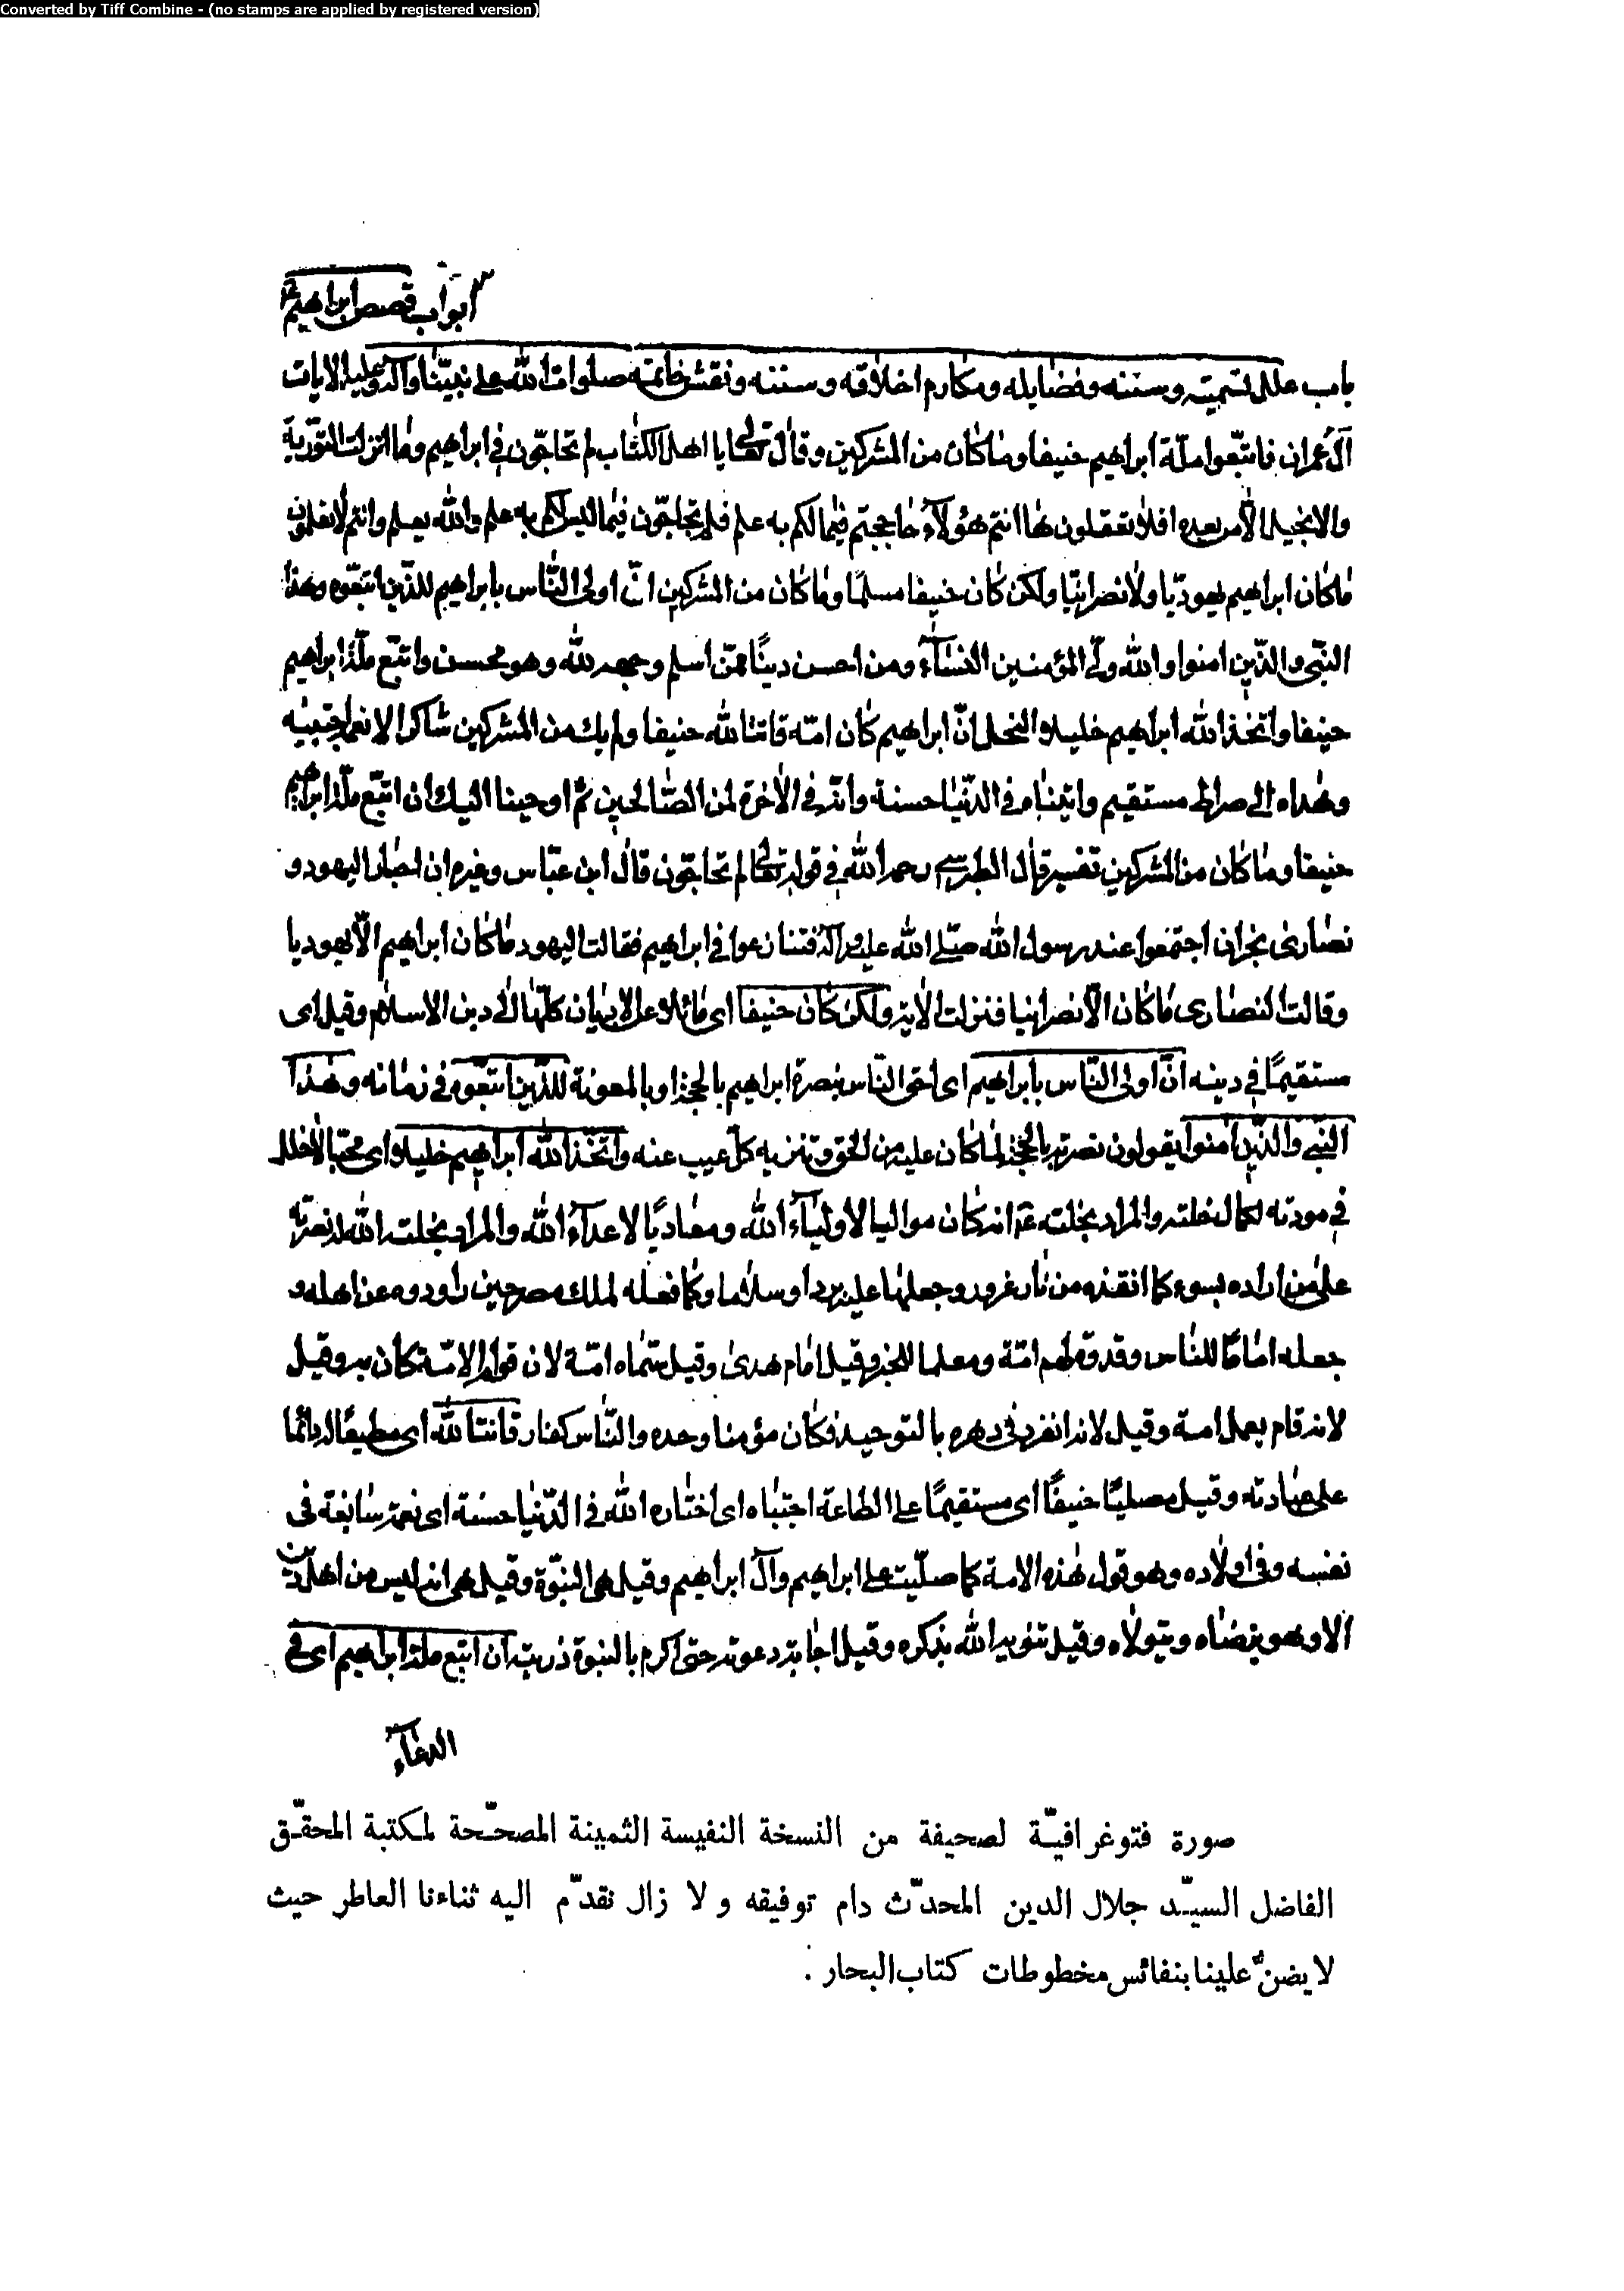 Converted by Tiff Combine - (no stamps are applied by registered version)
ابواب قصص ابراهيم
باب علل تسميته وسننه وفضايله ومكارم اخلاقه وسننه ونقش خاتمه صلوات الله على نبيّنا وآله وعليه الايات
آل عمران فاتّبعوا ملّة ابراهيم حنيفا وما كان من المشركين وقال تعالى يا اهل الكتاب لم تحاجّون في ابراهيم وما انزلت التّورية
والانجيل الّا من بعده افلا تعقلون ها انتم هؤلآء حاججتم فيما لكم به علم فلم تحاجّون فيما ليس لكم به علم والله يعلم وانتم لا تعلمون
ما كان ابراهيم يهوديّا ولا نصرانيّا ولكن كان حنيفا مسلمًا وما كان من المشركين انّ اولى النّاس بابراهيم للذّين اتبّعوه وهذا
النبّى والذّين امنوا والله ولّى المؤمنين النسآء ومن احسن دينًا ممّن اسلم وجهه لله وهو محسن واتبّع ملّة ابراهيم
حنيفا واتّخذ الله ابراهيم خليلا النحل انّ ابراهيم كان امّة قانتا لله حنيفا ولم يك من المشركين شاكرا لانعمه اجتبيه
وهداه الى صراط مستقيم واتيناه في الدّنيا حسنة وانّه في الاخرة لمن الصّالحين ثمّ اوحينا اليك ان اتبّع ملّة ابراهيم
حنيفا وما كان من المشركين تفسير قال الطبرسي رحمه الله في قوله تعالى لم تحاجّون قال ابن عبّاس وغيره ان احبار اليهود و
نصارى نجران اجتمعوا عند رسول الله صلّى الله عليه وآله فتنازعوا في ابراهيم فقالت اليهود ما كان ابراهيم الّا يهوديا
وقالت النصارى ما كان الّا نصرانيا فنزلت الاية ولكن كان حنيفا اى مائلا عن الاديان كلّها الى دين الاسلام وقيل اى
مستقيمًا في دينه انّ اولى النّاس بابراهيم اى احق النّاس بنصرة ابراهيم بالحجة او بالمعونة للذّين اتبّعوه في زمانه وهذا
النبّي والذّين امنوا يقولون نصرته بالحجة لما كان عليه من الحق وتنزيه كلّ عيب عنه واتّخذ الله ابراهيم خليلا اى محبّا لا خلل
في مودته لكمال خلته والمراد بخلته انه كان مواليا لاوليآء الله ومعاديًا لاعدآء الله والمراد بخلت الله له نصرته
على من اراده بسوء كما انقذه من نار نمرود وجعلها عليه بردا وسلاما وكما فعله لملك مصر حين راوده عن اهله و
جعله امامًا للناس وقدوة لهم امّة ومعلما للخير وقيل امام هدى وقيل سمّاه امّة لان قوام الامّة كان به وقيل
لانه قام بعمل امة وقيل لانه انفرد في دهره بالتوحيد فكان مؤمنا وحده والنّاس كفار قانتا لله اى مطيعًا له دائما
على عبادته وقيل مصليًا حنيفًا اى مستقيمًا على الطاعة اجتباه اى اختاره الله في الدّنيا حسنة اى نعمة سابغة فى
نفسه وفي اولاده وهو قول هذه الامة كما صلّيت على ابراهيم وآل ابراهيم وقيل هى النبوّة وقيل هى انه ليس من اهل دين
الا وهو يرضاه ويتولاه وقيل تنويه الله بذكره وقيل اجابة دعوته حتى اكرم بالنبوة ذريته ان اتبع ملة ابراهيم اى في
الدعآء
صورة فتوغرافيّة لصحيفة من النسخة النفيسة الثمينة المصحّحة لمكتبة المحقّق
الفاضل السيّد جلال الدين المحدّث دام توفيقه و لا زال نقدّم اليه ثناءنا العاطر حيث
لا يضنّ علينا بنفائس مخطوطات كتاب البحار .